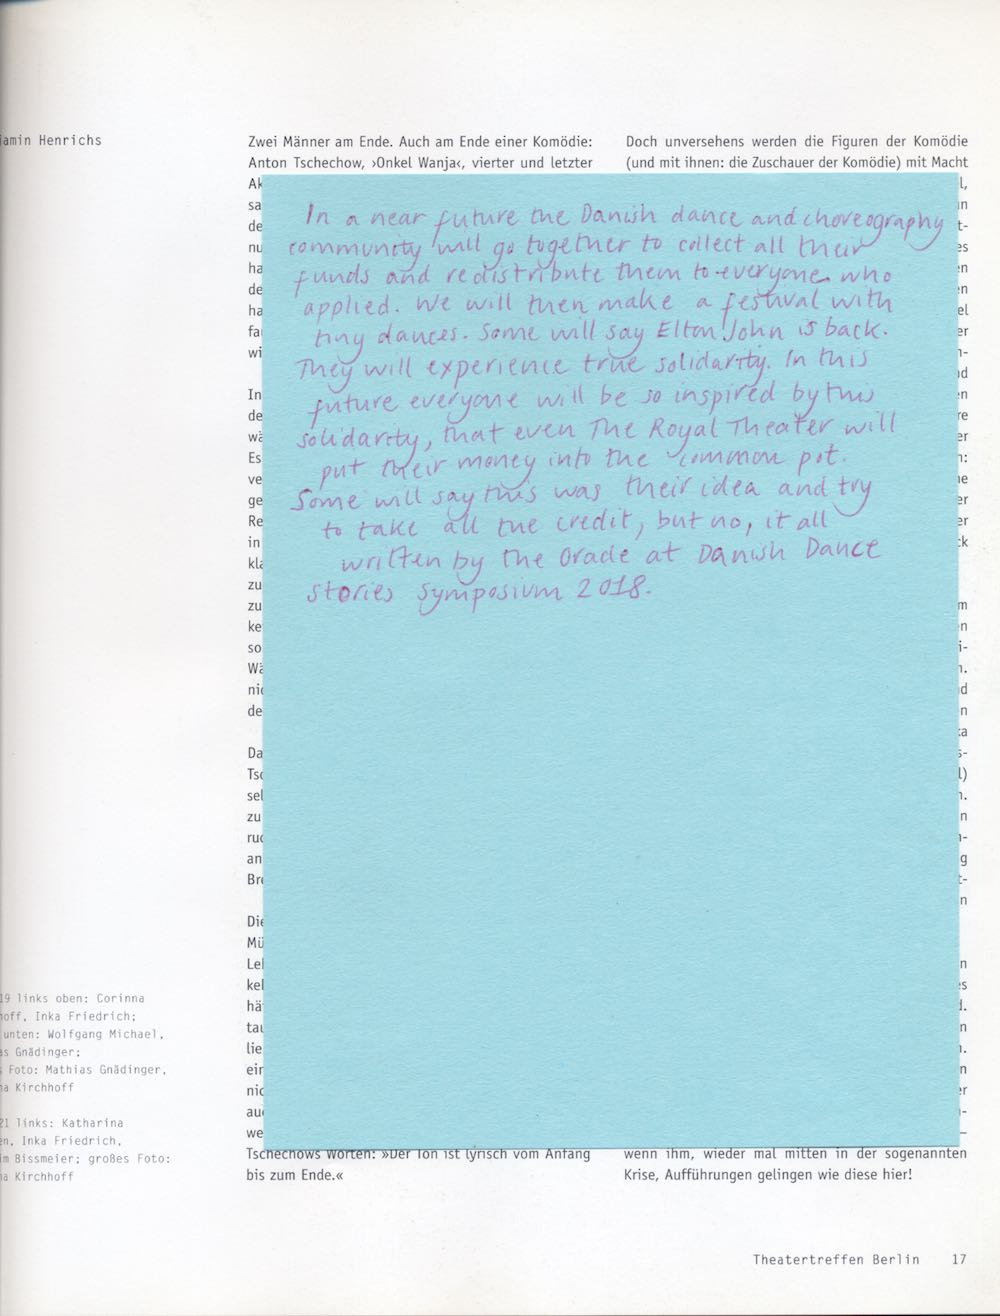 jamin Henrichs
Zwei Männer am Ende. Auch am Ende einer Komödie:
Anton Tschechow, ›Onkel Wanja‹, vierter und letzter
Doch unversehens werden die Figuren der Komödie
(und mit ihnen: die Zuschauer der Komödie) mit Macht
In a near future the Danish dance and choreography
community will go together to collect all their
funds and redistribute them to everyone who
applied. We will then make a festival with
tiny dances. Some will say Elton John is back.
They will experience true solidarity. In this
future everyone will be so inspired by this
solidarity, that even The Royal Theater will
put their money into the common pot.
Some will say this was their idea and try
to take all the credit, but no, it all
written by the Oracle at Danish Dance
stories symposium 2018.
19 links oben: Corinna
hoff, Inka Friedrich;
unten: Wolfgang Michael,
as Gnädinger;
Foto: Mathias Gnädinger,
na Kirchhoff
21 links: Katharina
en, Inka Friedrich,
im Bissmeier; großes Foto:
na Kirchhoff
Tschechows Worten: »Der Ton ist lyrisch vom Anfang
bis zum Ende.«
wenn ihm, wieder mal mitten in der sogenannten
Krise, Aufführungen gelingen wie diese hier!
Theatertreffen Berlin 17